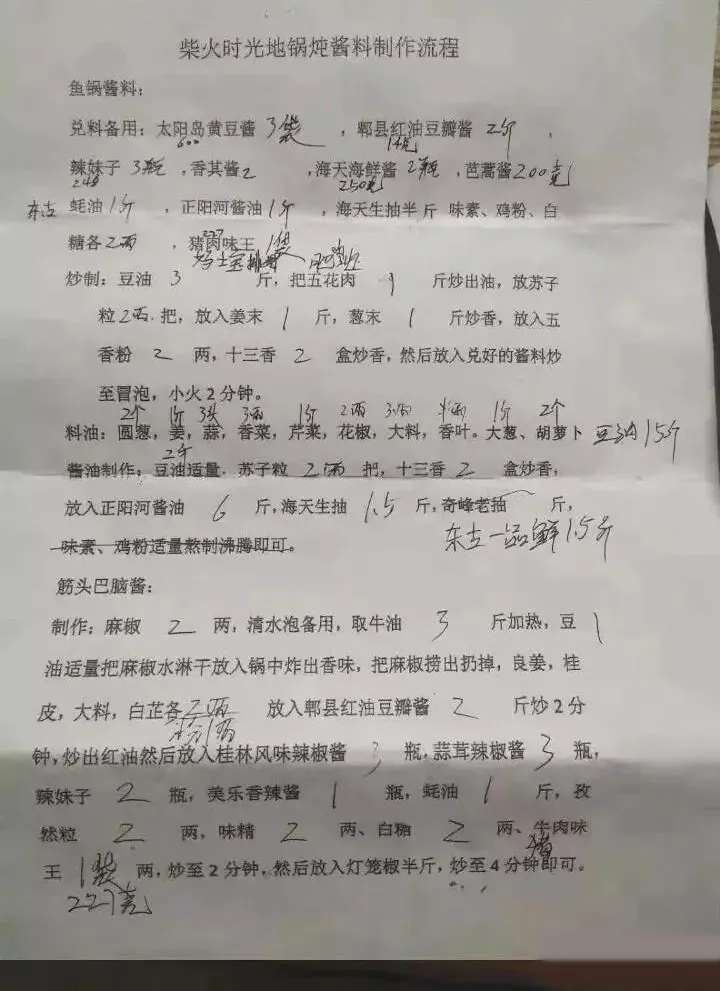 柴火时光地锅炖酱料制作流程
鱼锅酱料：
兑料备用：太阳岛黄豆酱3袋，郫县红油豆瓣酱2斤，
600
辣妹子3瓶，香其酱2，海天海鲜酱2瓶，芭蒿酱200克
250克
东古 蚝油1斤，正阳河酱油1斤，海天生抽半斤 味素、鸡粉、白
糖各2两，猪肉味王1袋
炒制：豆油3斤，把五花肉1斤炒出油，放苏子
粒2两.把，放入姜末1斤，葱末1斤炒香，放入五
香粉2两，十三香2盒炒香，然后放入兑好的酱料炒
至冒泡，小火2分钟。
2个 1斤 3头 3两 1斤 2两 3两 半两 1斤 2个
料油：圆葱，姜，蒜，香菜，芹菜，花椒，大料，香叶。大葱、胡萝卜 豆油15斤
2斤
酱油制作：豆油适量.苏子粒2两把，十三香2盒炒香，
放入正阳河酱油6斤，海天生抽1.5斤，奇峰老抽斤，
味素、鸡粉适量熬制沸腾即可。
东古一品鲜1.5斤
筋头巴脑酱：
制作：麻椒2两，清水泡备用，取牛油3斤加热，豆1
油适量把麻椒水淋干放入锅中炸出香味，把麻椒捞出扔掉，良姜，桂
皮，大料，白芷各2两 放入郫县红油豆瓣酱2斤炒2分
钟，炒出红油然后放入桂林风味辣椒酱3瓶，蒜茸辣椒酱3瓶，
辣妹子2瓶，美乐香辣酱1瓶，蚝油1斤，孜
然粒2两，味精2两、白糖2两、牛肉味
猪
王1袋两，炒至2分钟，然后放入灯笼椒半斤，炒至4分钟即可。
227克